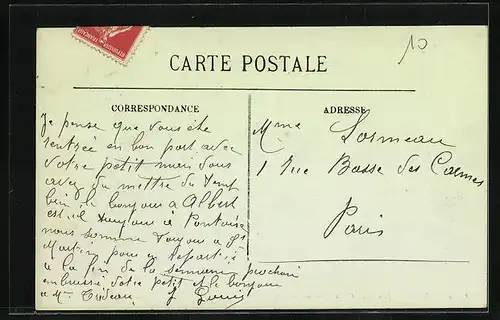 10
CARTE POSTALE
CORRESPONDANCE
ADRESSE
Je pense que vous ête
rentrée en bon port avec
votre petit mais vous
avez du mettre du temp
bien le bonjour a Albert
est il toujour a Pontoise
nous somme toujour a St
Martin pour en repartir
a la fin de la semaine prochain
embrassé votre petit et le bonjour
a Mr
Louis
Mme Lormeau
1 Rue Basse des Carmes
Paris